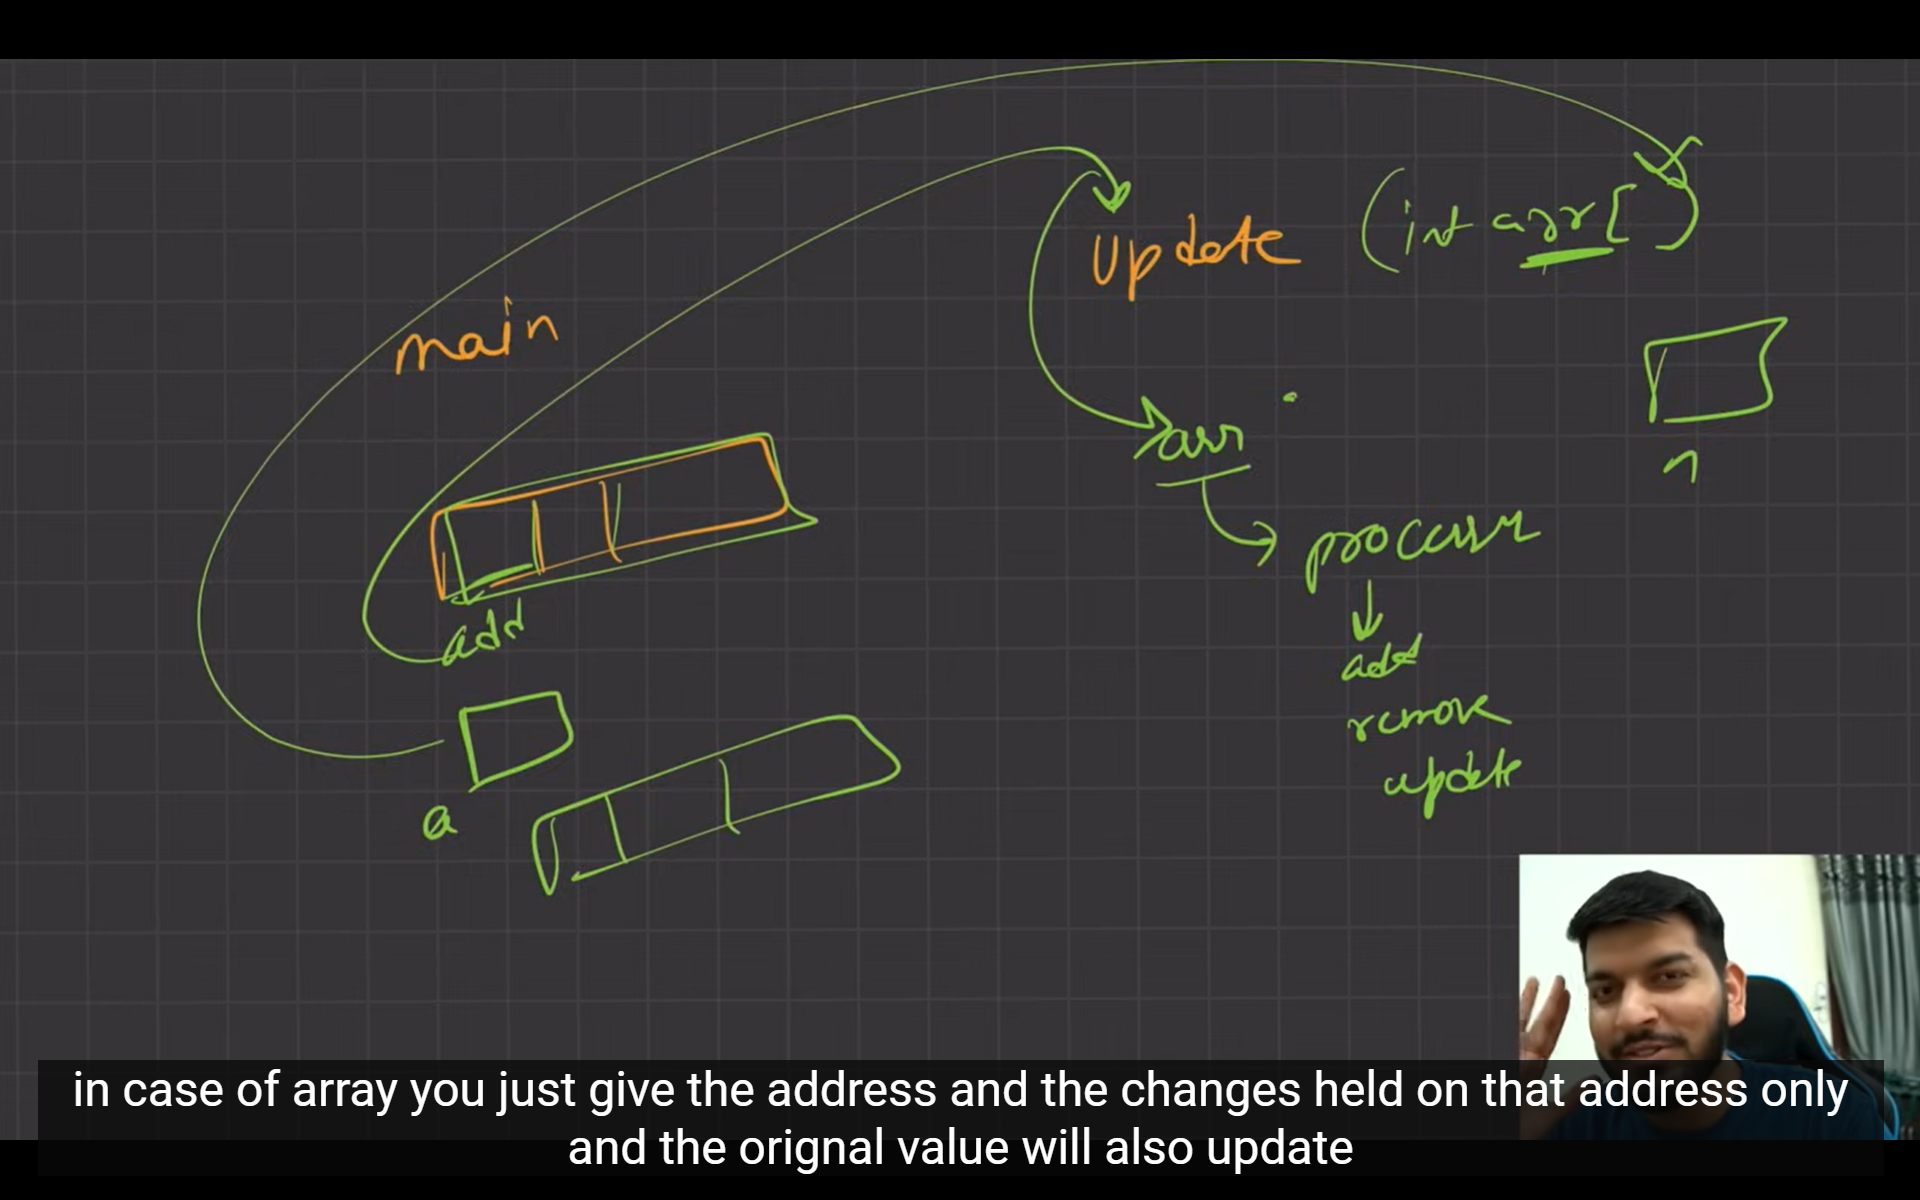 Update (int arr[ )
main
arr
n
process
add
add
remove
update
a
in case of array you just give the address and the changes held on that address only
and the orignal value will also update